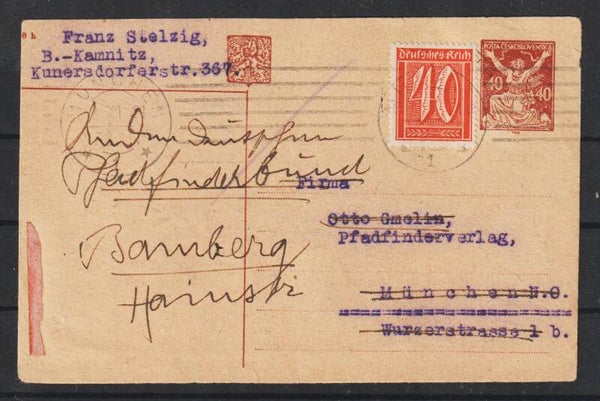 Franz Stelzig,
B.-Kamnitz,
Kunersdorferstr.367.
MÜNCHEN
Deutsches Reich
40
POŠTA ČESKOSLOVENSKÁ
40 40
An den deutschen
Pfadfinderbund
Bamberg
Hainstr
Firma
Otto Gmelin,
Pfadfinderverlag,
München N.O.
Wurzerstrasse 1 b.